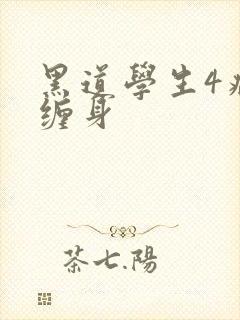 黑道學生4
缠身
茶七.陽